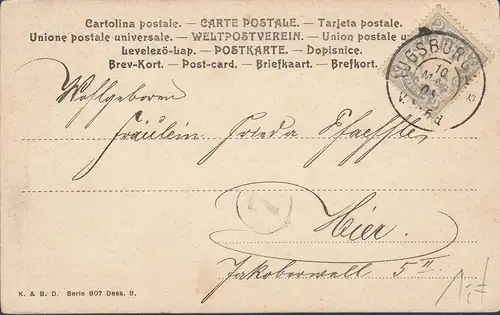 Cartolina postale. — CARTE POSTALE. — Tarjeta postale.
Unione postale universale. — WELTPOSTVEREIN. — Union postale u
Levelező-Lap. — POSTKARTE. — Dopisnice.
Brev-Kort. — Post-card. — Briefkaart. — Brefkort.
UGSBURG
10
Wohlgeboren
Fräulein Frieda
Hier.
Jakoberwall 5 II
K. & B. D. Serie 807 Dess. 8.